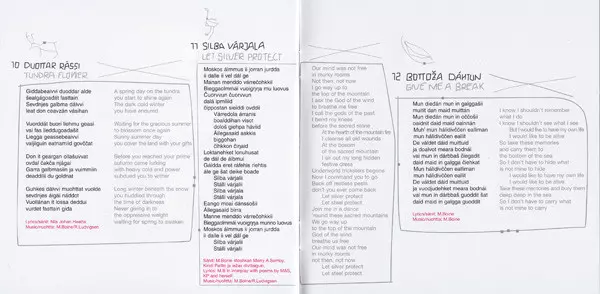 10 DUOTTAR RÁSSI
TUNDRA FLOWER
Giddabeaivvi duoddar alde
šealgágoađát fasttain
Sevdnjes galbma dálvvi
leat don ceavzán vásihan
Vuorddát buori liehmu geasi
vai fas lieđđugoađát
Liegga geassebeaivvi
vajiguin eatnamid govččat
Don it geargan ollašuvvat
ovdal čakča njágai
Garra galbmasiin ja vuimmiin
deaddila du goldnat
Guhkes dálvvi muohttat vuolde
sevdnjes áiggi nahkát
It atte fámus lodda
vurdet fasttain giđa
Lyrics/sánit: Nils Johan Heatta
Music/nuohtta: M.Boine/R.Ludvigsen
A spring day on the tundra
you start to shine again
The dark cold winter
you have endured
Waiting for the gracious summer
to blossom once again
Sunny summer day
you cover the land with your gifts
Before you reached your prime
autumn came folding
with heavy cold and power
subdued you to wither
Long winter beneath the snow
you huddled through
the time of darkness
Never giving in to
the oppressive weight
waiting for spring to awaken
11 SILBA VÁRJALA
LET SILVER PROTECT
Moskos ámmus ii jorran jurdda
ii dalle ii vel dál ge
Manan menddo várrečohkkii
Bieggaolmmái vuoigŋa mu luovus
Čuorvvun čuorvvun
dalá ipmiliid
Oppostan sielddi ovddit
Várredola árrans
bovldidhan vieid
dološ gohpa hálvái
Állegasaid áskkis
Loggohan
Ohkkon čirgad
Loktanehket loruhusat
de dál de áibmui
Goldas eret ráfehis riehta
ále šat boađe
Silba várjali
Stálli várjali
Silba várjali
Stálli várjali
Eango mosi dánsošii
Állegasaid biiris
Manne menddo várrečohkkii
Bieggaolmmái vuoigŋa mu luovus
Moskos ámmus ii jorran jurdda
ii dalle ii vel dál ge
Silba várjali
Stálli várjali
Silba várjali
Music/nuohtta: M.Boine/R.Ludvigsen
Our mind was not free
in murky rooms
Not then, not now
I go way up to
the top of the mountain
I ask the God of the wind
to breathe me free
I call the gods of the past
I bend my knees
before the sacred stone
At the hearth of the mountain fire
I observe all old wounds
At the bosom
of the sacred mountain
I air out my long hidden
festive dress
Underworld thickness begone
Now I command you to go
Back off restless pests
don't you ever come back
Let silver protect
Let steel protect
Join me in a dance
'round these sacred mountains
We go way up
to the top of the mountain
God of the wind
breathe us free
Our mind was not free
in murky rooms
not then, not now
Let silver protect
Let steel protect
Let silver protect
12 BOTTOŽA DÁHTUN
GIVE ME A BREAK
Mun diedán mun in galggašii
muitit dan maid muittán
Mun diedán mun in oččošii
oaidnit daid maid oainnán
Muh' mun háliidivččen ealliman
mun háliidivččen ealiit
mun háliidivččen ealliman
mun háliidivččen ealiit
De váldet daid muittuid
ja duolvot meara bodnái
vai mun in dárbbaš diegadit
daid maid in galgga čiehkat
Muh' mun háliidivččen eallimiid
mun háliidivččen ealiit
De váldet daid muittuid
ja vuvodjuldehet meara bodnái
vai mun in dárbbaš guoddit
daid maid in galgga guoddit
Lyrics/sánit: M.Boine
Music/nuohtta: M.Boine
I know I shouldn't remember
what I do
I know I shouldn't see what I see
But I would like to have my own life
I would like to be alive
So take these memories
and carry them to
the bottom of the sea
So I don't have to hide what
is not mine to hide
I would like to have my own life
I would like to be alive
Take these memories and bury them
deep deep in the sea
So I don't have to carry what
is not mine to carry